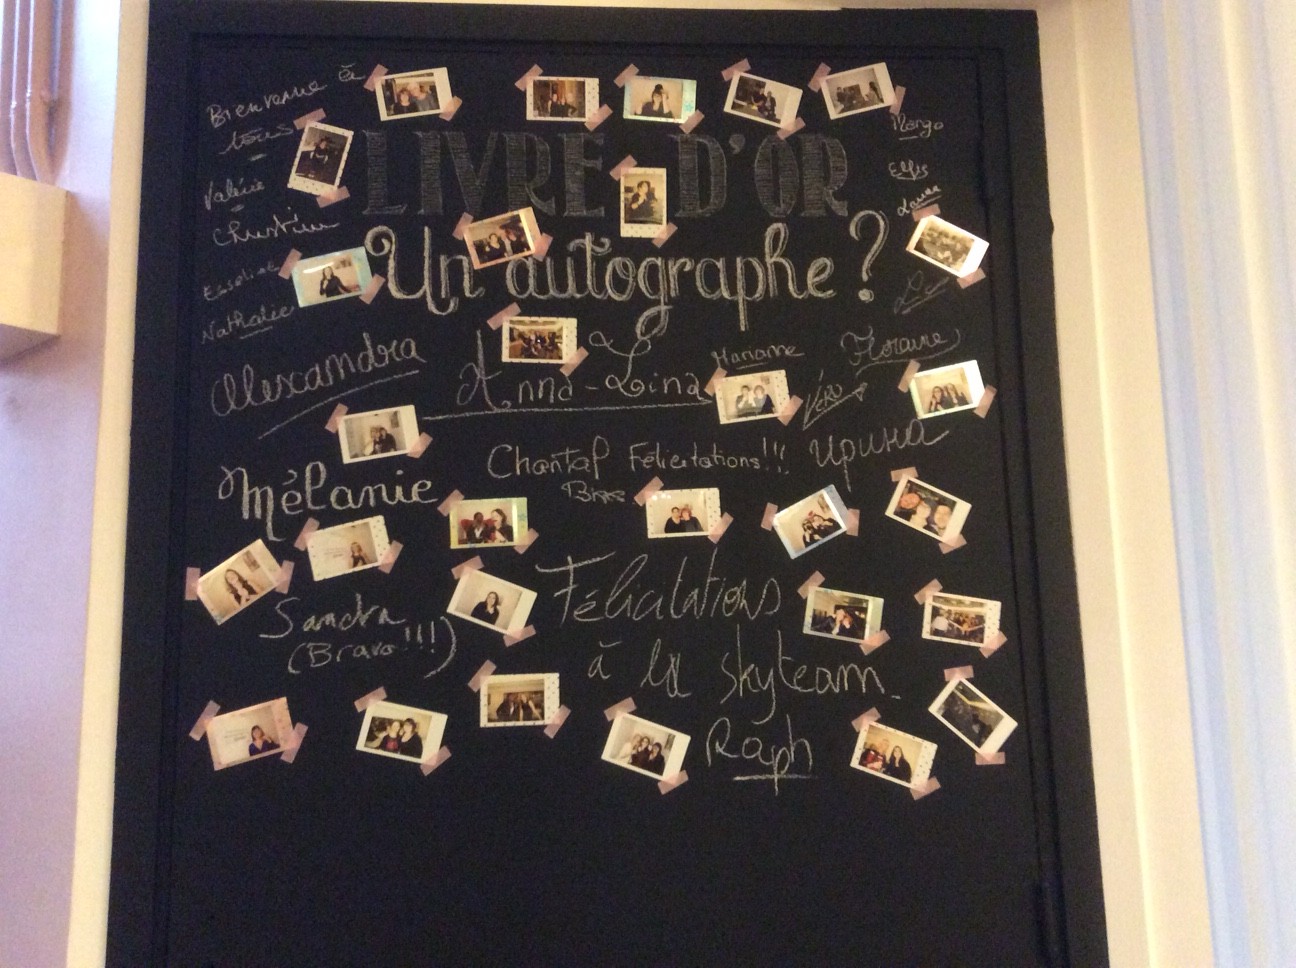 Bienvenue à
tous
LIVRE D'OR
Margo
Valérie
Christine
Un autographe ?
Nathalie
Alexandra
Anna-Lina
Marianne
Floraine
Véro
Mélanie
Chantal Félicitations!!!
Ирина
Bises
Félicitations
Sandra
(Bravo!!!)
à la skyteam.
Raph